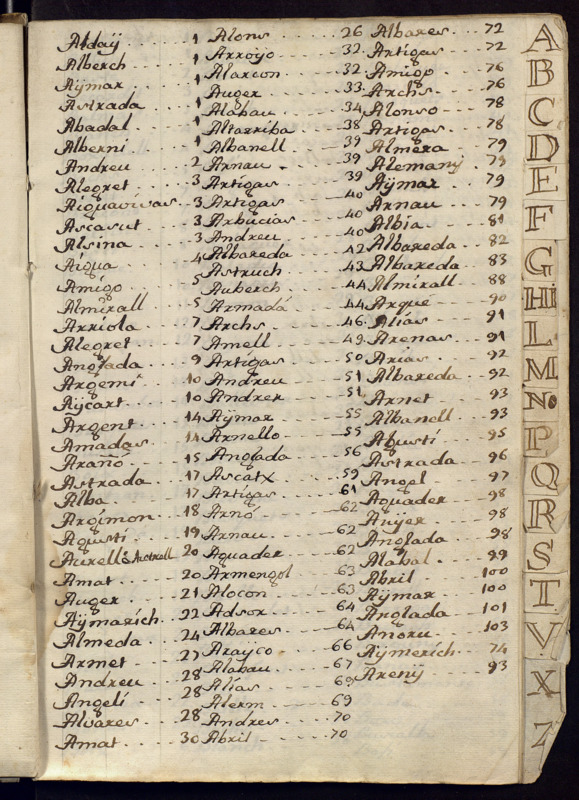 Aldaÿ . . . 1
Alberch . . . 1
Aÿmar . . . 1
Astrada . . 1
Abadal . . . 1
Alberni . . . 1
Andreu . . . 2
Alegret . . . 3
Aiguavivas . . 3
Ascasut . . . 3
Alsina . . . 3
Aigua . . . 4
Amigo . . . 5
Almirall . . . 5
Arriola . . . 7
Alegret . . . 7
Anglada . . . 9
Argemi . . . 10
Aÿcart . . . 10
Argent . . . 14
Amadas . . . 14
Arañó . . . 15
Astrada . . . 17
Alba . . . 17
Argimon . . . 18
Agusti . . . 19
Aurell ô Austrell 20
Amat . . . 20
Auger . . . 21
Aÿmarich . . . 22
Almeda . . . 24
Armet . . . 27
Andreu . . . 28
Angelí . . . 28
Alvares . . . 28
Amat . . . 30
Alons . . . 26
Arroÿo . . . 32
Alarcon . . . 32
Auger . . . 33
Alabau . . . 34
Altarriba . . . 38
Albanell . . . 39
Arnau . . . 39
Artigas . . . 39
Artigas . . . 40
Arbucias . . . 40
Andreu . . . 40
Albareda . . . 42
Astruch . . . 43
Auberch . . . 44
Armadá . . . 44
Archs . . . 46
Amell . . . 49
Artigas . . . 50
Andreu . . . 51
Andrer . . . 51
Aÿmar . . . 55
Arnello . . . 55
Anglada . . . 56
Ascatx . . . 59
Artigas . . . 61
Arnó . . . 62
Arnau . . . 62
Aguader . . . 62
Armengol . . . 63
Alocon . . . 63
Adsor . . . 64
Albares . . . 64
Araÿco . . . 66
Alabau . . . 67
Alias . . . 69
Alerm . . . 69
Andres . . . 70
Abril . . . 70
Albares . . . 72
Artigas . . . 72
Amigo . . . 76
Archs . . . 76
Alonso . . . 78
Artigas . . . 78
Almera . . . 79
Alemanÿ . . . 79
Aÿmar . . . 79
Arnau . . . 79
Albia . . . 81
Albareda . . . 82
Albareda . . . 83
Almirall . . . 88
Arque . . . 90
Alías . . . 91
Arenas . . . 91
Arias . . . 92
Albareda . . . 92
Arnet . . . 93
Albanell . . . 93
Agustí . . . 95
Astrada . . . 96
Angel . . . 97
Aguader . . . 98
Auÿer . . . 98
Anglada . . . 98
Alabal . . . 99
Abril . . . 100
Aÿmar . . . 100
Anglada . . . 101
Anoru . . . 103
Aÿmerich . . . 74
Arenÿ . . . 93
A
B
C
D
E
F
G
H
L
M
N
P
Q
R
S
T
V
X
Z